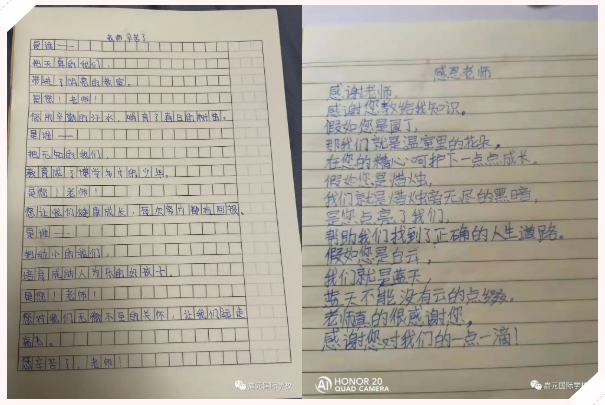 老师,辛苦了
是谁——
把天真的我们,
带进了明亮的教室。
是您!老师!
您用辛勤的汗水,哺育了春日的树苗。
是谁——
把无知的我们,
教育成了博学多才的少年。
是您!老师!
您让我们健康成长,每次努力都有回报。
是谁——
把幼小的我们,
培育成助人为乐的好孩子。
是您!老师!
您对我们无微不至的关怀,让我们远走
高飞。
您辛苦了,老师!
启元国际学校
感恩老师
感谢老师,
感谢您教给我知识。
假如您是园丁,
那我们就是温室里的花朵。
在您的精心呵护下一点点成长。
假如您是烛火,
我们就是烛火旁无尽的黑暗,
是您点亮了我们,
帮助我们找到了正确的人生道路。
假如您是白云,
我们就是蓝天,
蓝天不能没有云的点缀。
老师真的很感谢您,
感谢您对我们的一点一滴!
AI HONOR 20
QUAD CAMERA
启元国际学校